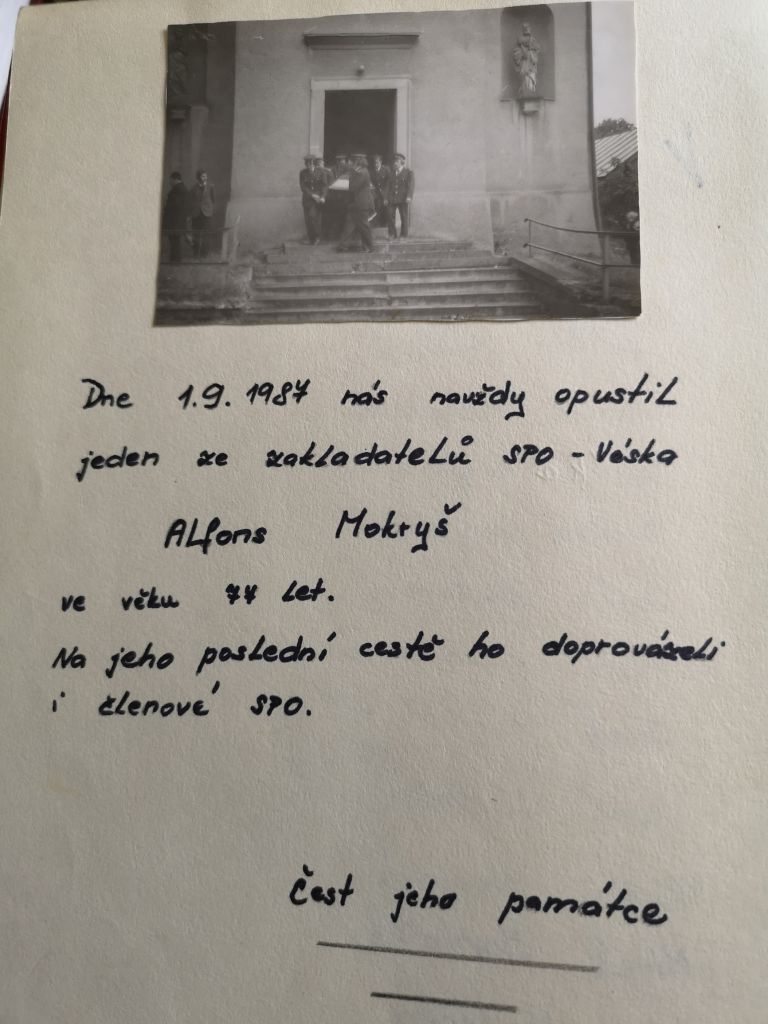 Dne 1.9. 1987 nás navždy opustil
jeden ze zakladatelů SPO - Véska
Alfons Mokryš
ve věku 77 let.
Na jeho poslední cestě ho doprovázeli
i členové SPO.
Čest jeho památce